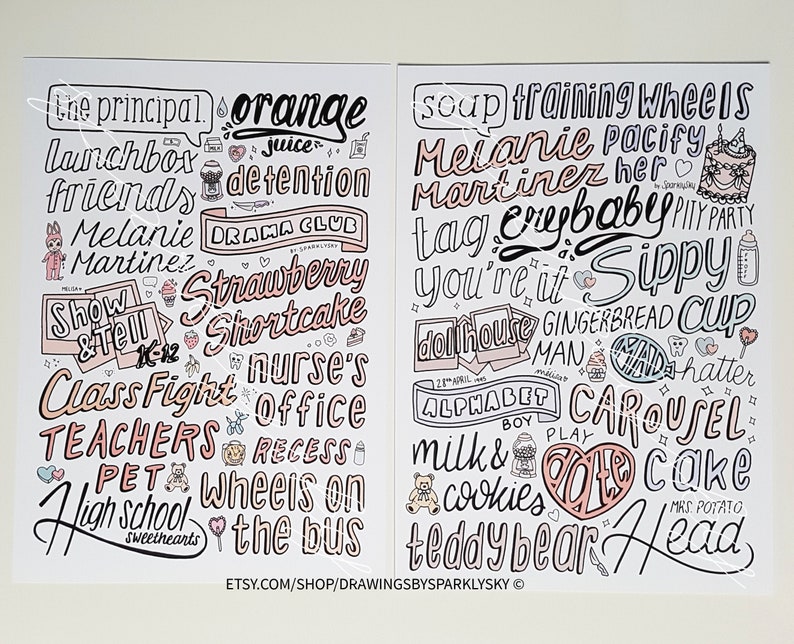 the principal.
orange
juice
lunchbox
friends
detention
Melanie
Martinez
DRAMA CLUB
BY SPARKLYSKY
MELISA
Strawberry
Shortcake
Show
& Tell
K-12
nurse's
office
Class Fight
TEACHERS
PET
RECESS
High school
sweethearts
wheels on
the bus
soap
training wheels
Melanie
Martinez
pacify
her
by SparklySky
crybaby
PITY PARTY
tag
you're it
Sippy
cup
dollhouse
GINGERBREAD
MAN
28TH APRIL 1995
melisa
MAD
hatter
ALPHABET
BOY
CAROUSEL
milk &
cookies
PLAY
date
cake
teddy bear
MRS. POTATO
Head
ETSY.COM/SHOP/DRAWINGSBYSPARKLYSKY ©